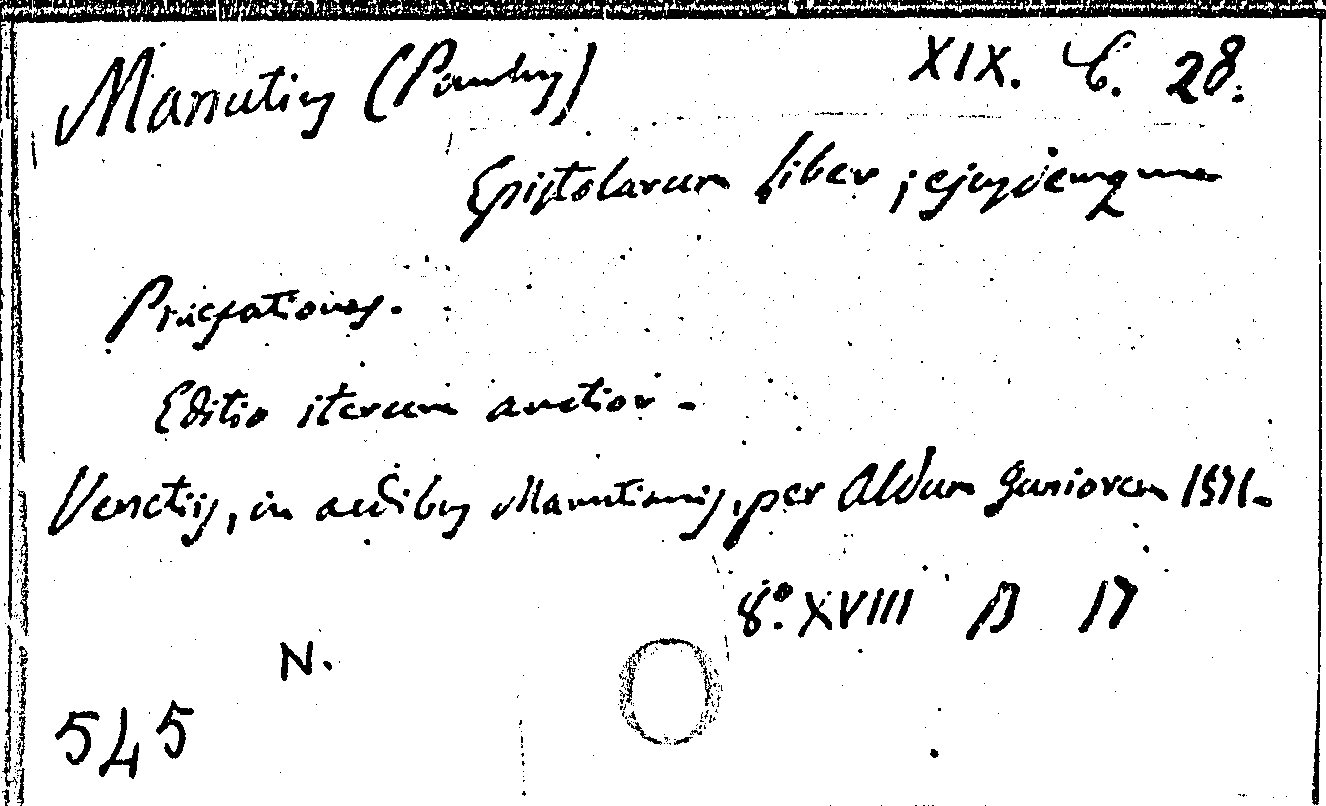 Manutius (Paulus) XIX. C. 28.
Epistolarum liber; ejusdemque
Praefationes.
Editio iterum auctior.
Venetijs, in aedibus Manutianis, per Aldum Juniorem 1571.
8.° XVIII B 17
N.
545